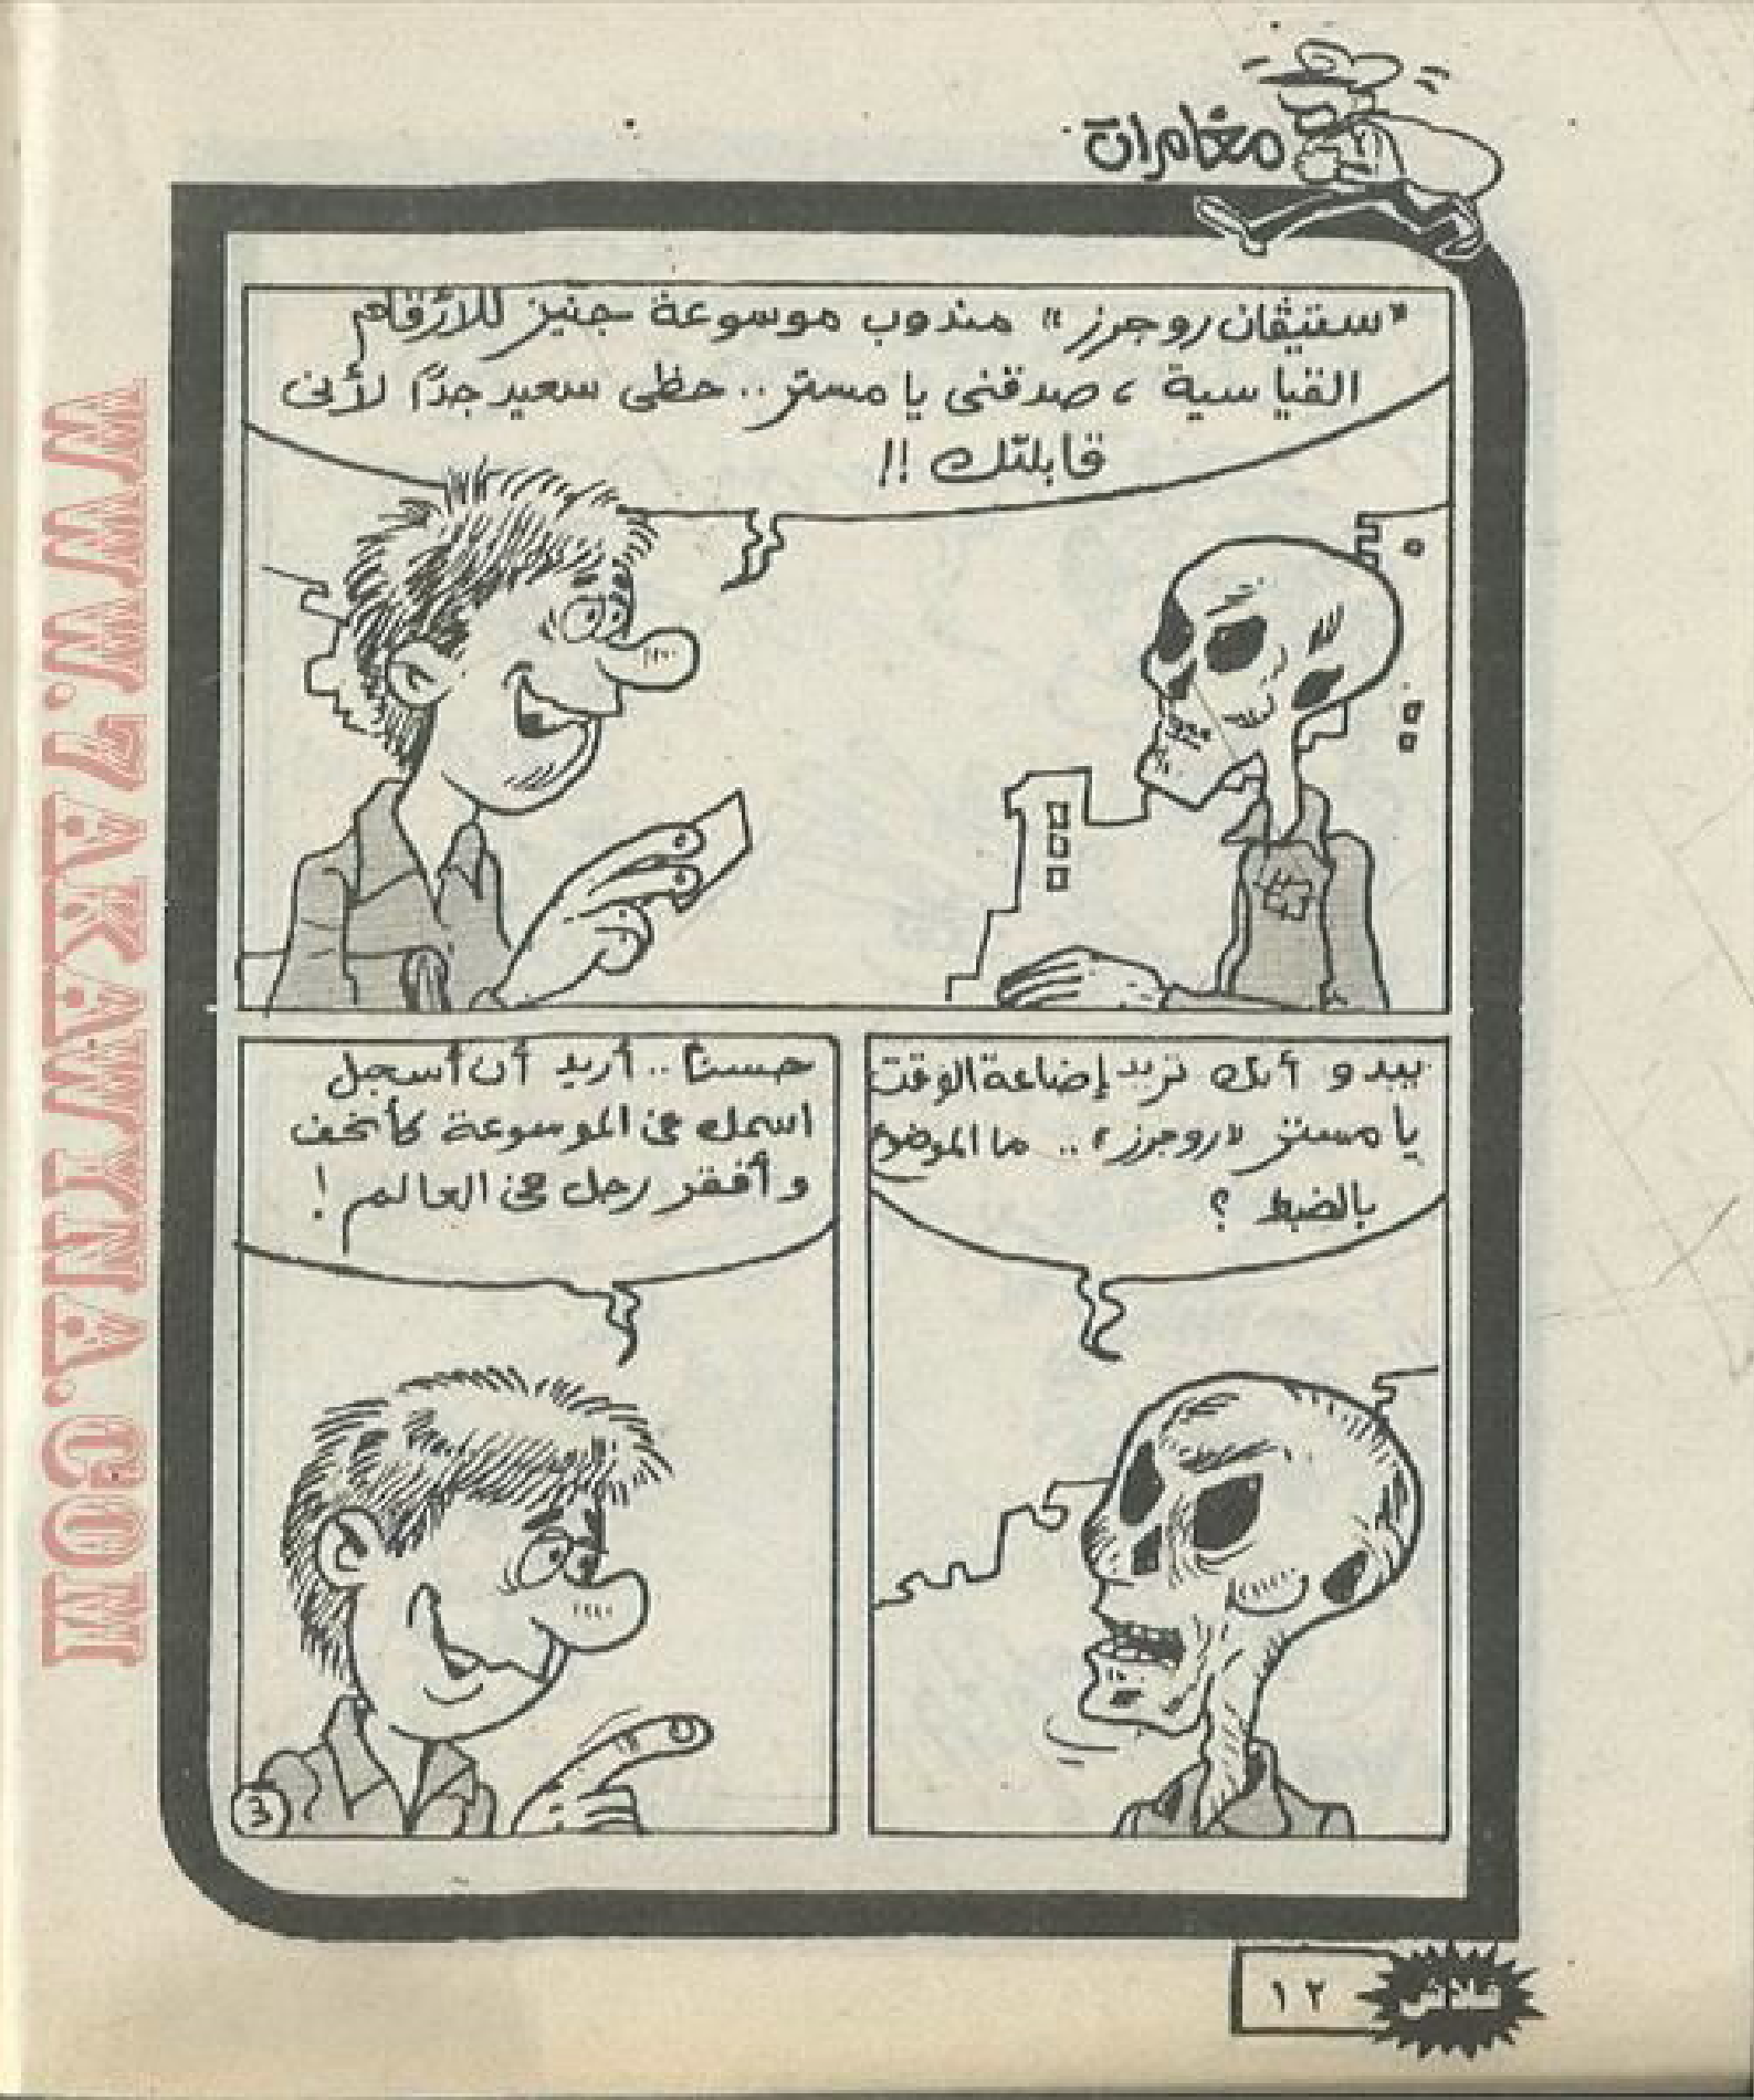 مغامرات
"ستيڤان روجرز" مندوب موسوعة جنيز للأرقام
القياسية، صدقنى يا مستر.. حظى سعيد جدًا لأنى
قابلتك !!
يبدو أنك تريد إضاعة الوقت
يا مستر «روجرز».. ما الموضوع
بالضبط ؟
حسنًا.. أريد أن أسجل
اسمك فى الموسوعة كأنحف
وأفقر رجل فى العالم !
٣
١٢
فلاش
WWW.7AKAWTINA.COM